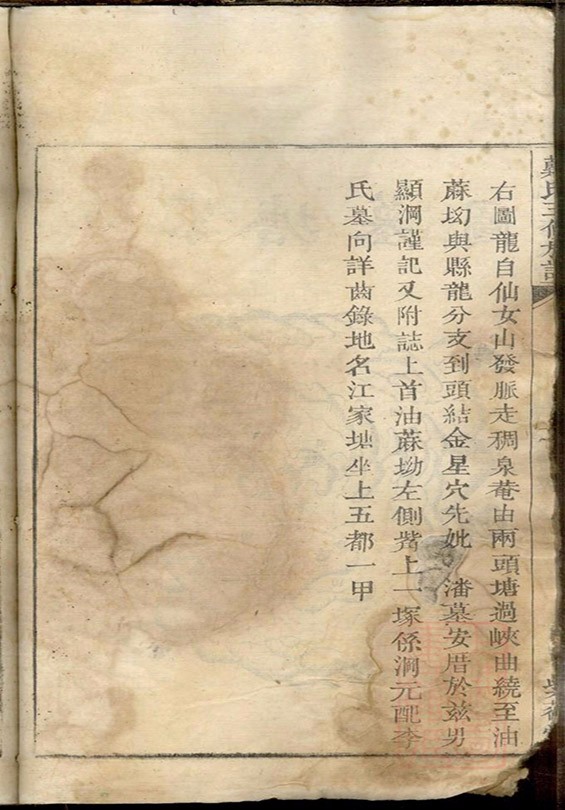 右圖龍自仙女山發脈走稠泉菴由兩頭塘過峽曲繞至油
蔴坳與縣龍分支到頭結金星穴先妣 潘墓安厝於茲男
顯澗謹記又附誌上首油蔴坳左側嘴上一塚係澗元配李
氏墓向詳齒錄地名江家塘坐上五都一甲